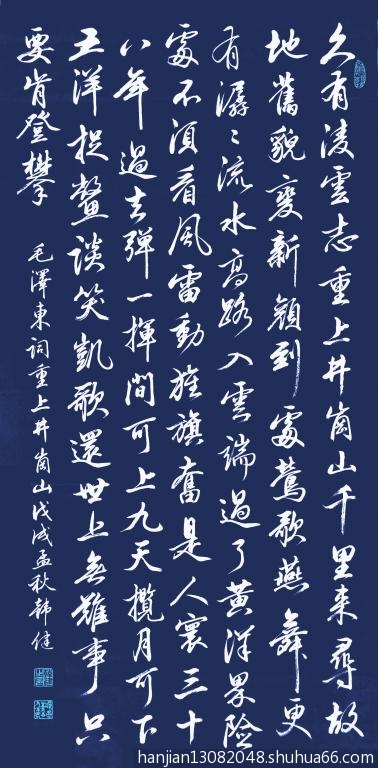 久有凌雲志重上井崗山千里来尋故
地舊貌變新顔到處鶯歌燕舞更
有潺〻流水高路入雲端過了黄洋界險
處不須看風雷動旌旗奮是人寰三十
八年過去彈一揮間可上九天攬月可下
五洋捉鱉談笑凱歌還世上無難事只
要肯登攀
毛澤東詞重上井崗山戊戌孟秋韩健
hanjian13082048.shuhua66.com